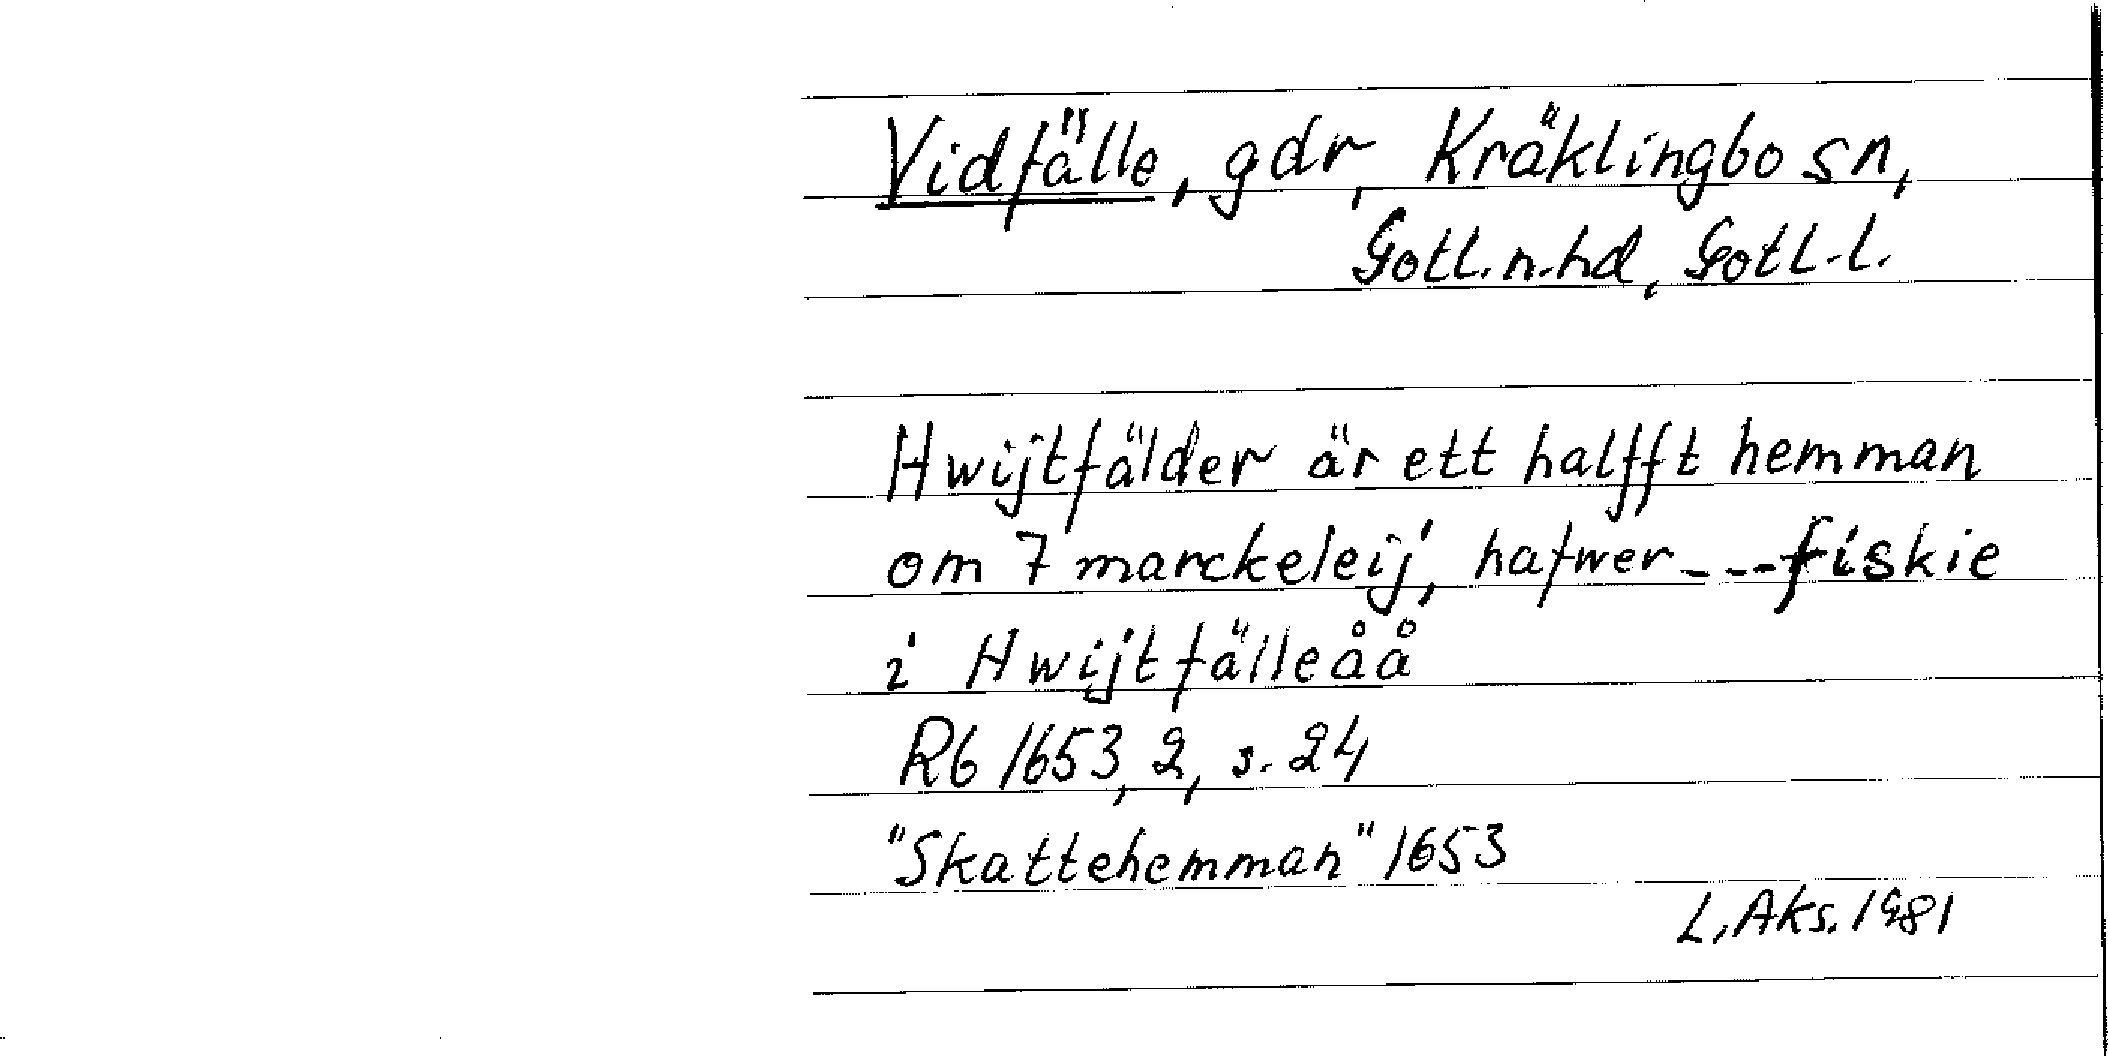 Vidfälle, gdr, Kräklingbo sn,
Gotl. n. hd, Gotl. l.
Hwijtfälder är ett halfft hemman
om 7 marckeleij, hafwer --- fiskie
i Hwijtfälleåå
Rb 1653, 2, s. 24
"Skattehemman" 1653
L. Aks. 1981